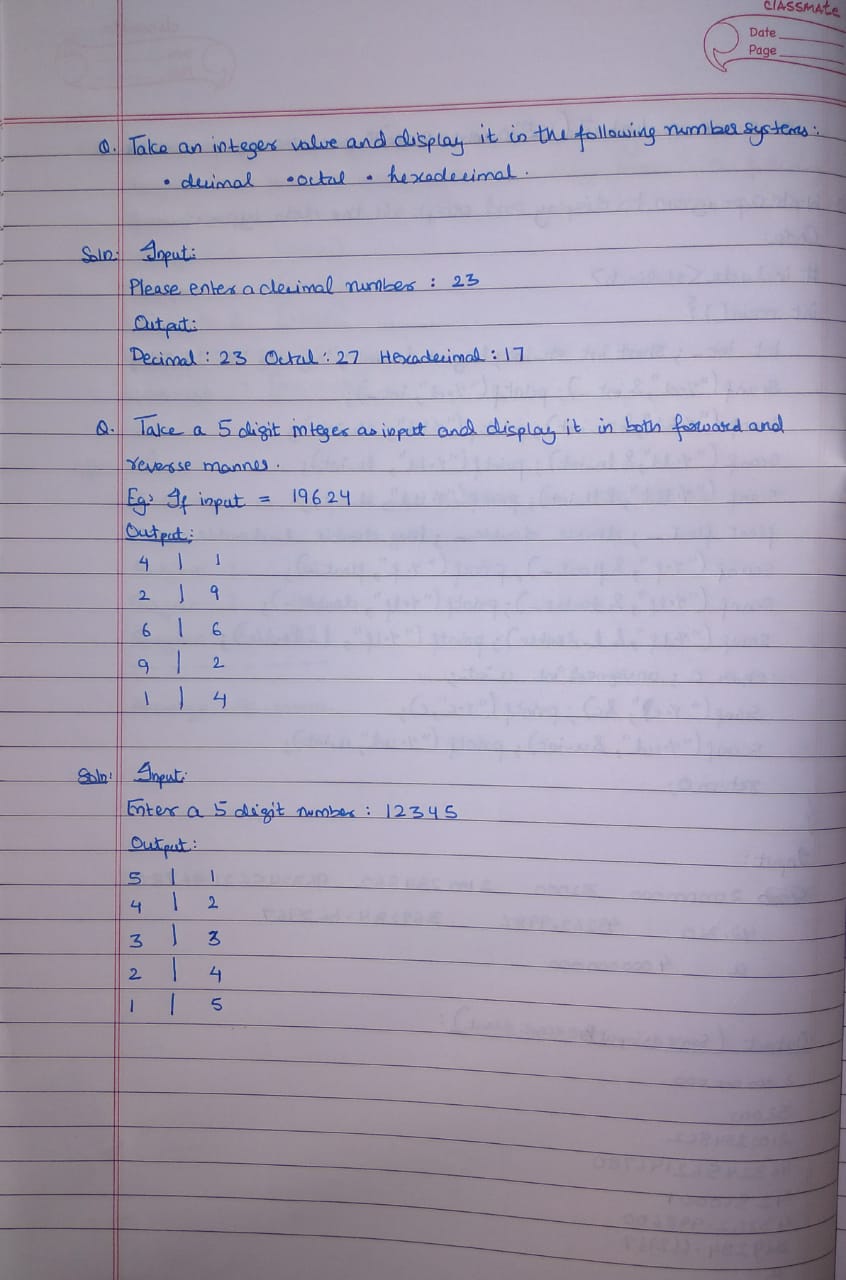 CLASSMATE
Date
Page
Q. Take an integer value and display it in the following number systems:
• decimal • octal • hexadecimal.
Soln: Input:
Please enter a decimal number : 23
Output:
Decimal : 23 Octal : 27 Hexadecimal : 17
Q. Take a 5 digit integer as input and display it in both forward and
reverse manner.
Eg: If input = 19624
Output:
4 | 1
2 | 9
6 | 6
9 | 2
1 | 4
Soln: Input:
Enter a 5 digit number : 12345
Output:
5 | 1
4 | 2
3 | 3
2 | 4
1 | 5